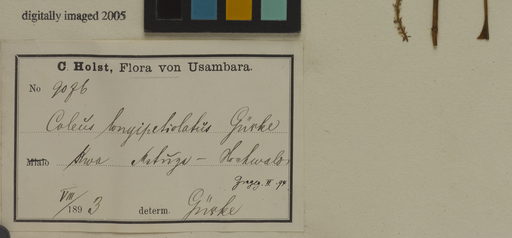 digitally imaged 2005
C. Holst, Flora von Usambara.
No 9096
Coleus longipetiolatus Gürke
Mlalo Kwa Mstuza – Hochwald
VIII/1893 determ. Gürke